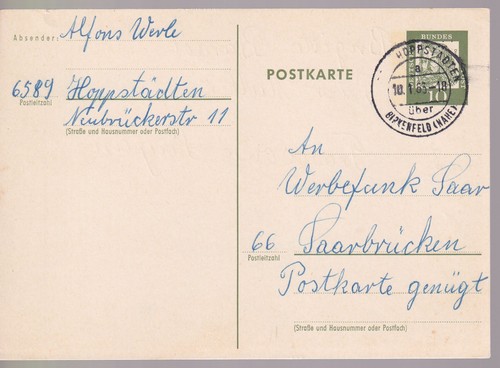 Absender: Alfons Werle
6589 Hoppstädten
Postleitzahl
Neubrückerstr 11
(Straße und Hausnummer oder Postfach)
POSTKARTE
BUNDES
HOPPSTÄDTEN
a
über
BIRKENFELD (NAHE)
An
Werbefunk Saar
66 Saarbrücken
Postleitzahl
Postkarte genügt
(Straße und Hausnummer oder Postfach)